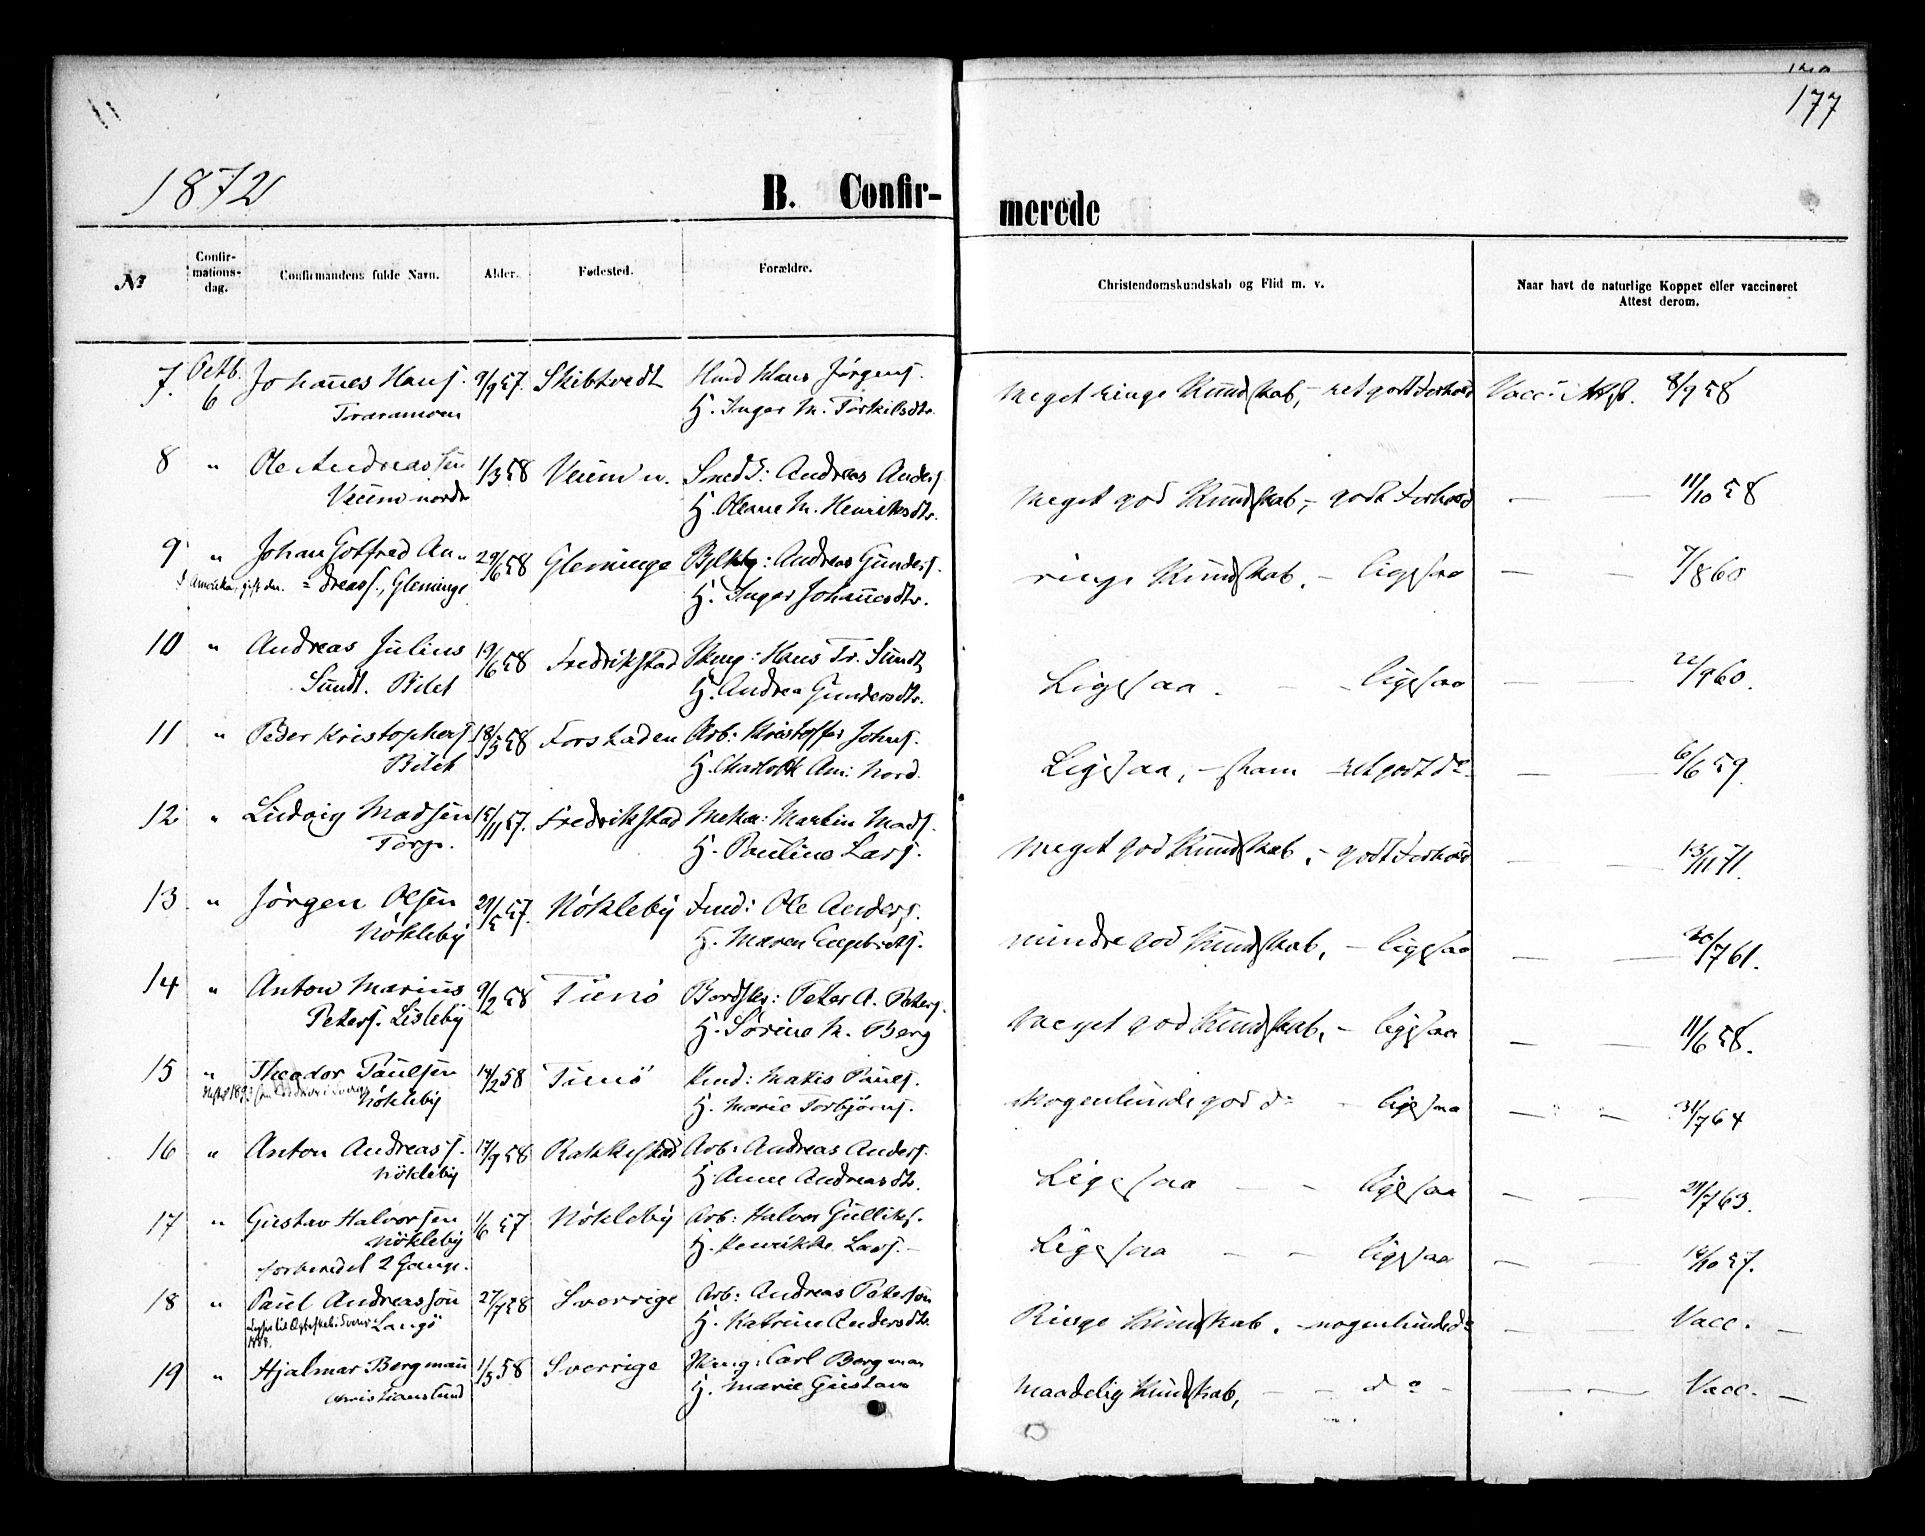 177
1872
B. Confir-
merede
No
Confir-
mations-
dag.
Confirmandens fulde Navn.
Alder.
Fødested.
Forældre.
Christendomskundskab og Flid m. v.
Naar havt de naturlige Kopper eller vaccineret
Attest derom.
7. Octb. 6 Johannes Hans. 9/9 57. Skibtvedt
H. Inger M. Torkilsdtr.
Meget ringe Kundskab, - ret godt Forhold Vacc: Attst. 8/9 58
8 " Ole Andreassen 1/3 58 Veum n. Smed S: Andreas Anders.
Veum nordr H. Oleane M. Henriksdtr.
Meget god Kundskab, - godt Forhold — — 11/10 58
9 " Johan Gotfred An- 29/6 58 Gleminge : Andreas Gunders.
Amerika = dreass., Gleminge H. Inger Johannesdtr.
ringe Kundskab. - ligesaa — — 7/8 60
10 " Andreas Julius 19/6 58 Fredrikstad Hans Fr. Sundt
Sundt. Bilet H. Andrea Gundersdtr.
Ligesaa. - - ligesaa — — 22/9 60.
11 " Peder Kristophers. 18/5 58 Forstaden Arb: Kristoffer Johns.
Bilet H. Charlotte Am: Nord.
Ligesaa, - ret godt do — — 6/6 59.
12 " Ludvig Madsen 15/11 57. Fredrikstad Meka: Martin Mads.
Torp. H. Pauline Lars.
Meget god Kundskab, - godt Forhold — — 13/11 71.
13 " Jörgen Olsen 29/5 57. Nökleby Ole Anders.
Nökleby H. Maren Engebrets.
mindre god Kundskab, - ligesaa — — 20/7 61.
14 " Anton Marius 9/2 58 Tunö Bordskr: Peter A. Peters.
Peters. Lisleby H. Sörine M. Berg
Meget god Kundskab, - ligesaa — — 11/6 58.
15 " Theodor Paulsen 14/2 58 Tunö : Matis Pauls.
Nökleby H. Marie Torbjörns.
Nogenlunde god do - ligesaa — — 31/7 64
16 " Anton Andreass. 17/9 58 Rakkestad Arb: Andreas Anders.
Nökleby H. Anne Andreasdtr.
Ligesaa - - ligesaa — — 29/7 63.
17 " Gustav Halvorsen 1/6 57 Nökleby Arb: Halvor Gulliks.
Nökleby H. Henrikke Lars. -
forberedet 2 Gange.
Ligesaa - - ligesaa — — 14/10 57.
18 " Paul Andreassön 27/7 58 Sverrige Arb: Andreas Peterson
Langö H. Katrine Andersdtr.
Ringe Kundskab. - nogenlunde do — — Vacc. —
19 " Hjalmar Bergman 1/5 58 Sverrige Carl Bergman
Christianslund H. Marie Gustava
Maadelig Kundskab, - - do - — — Vacc. —